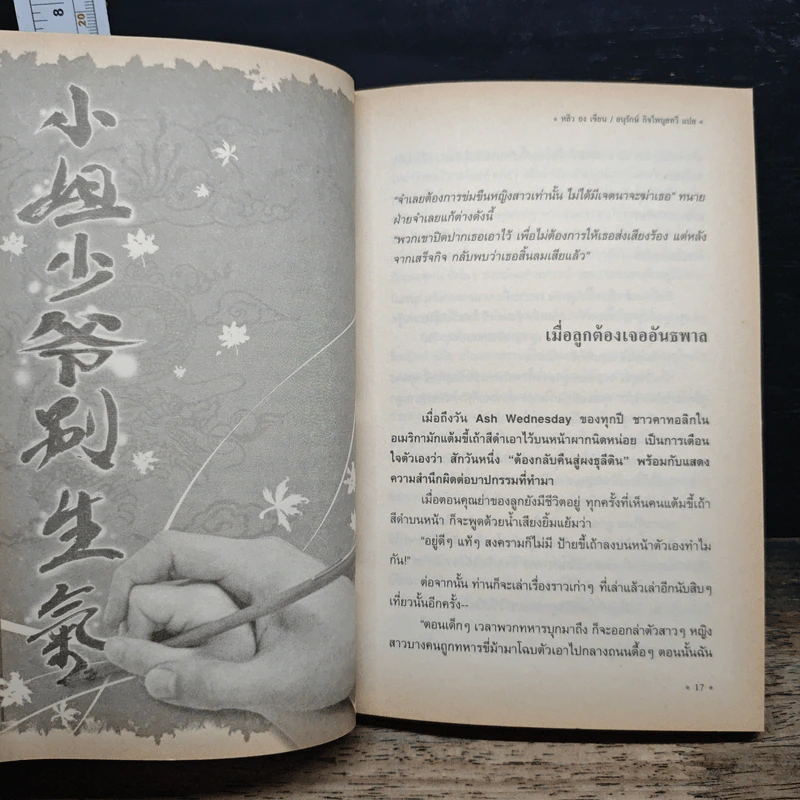 8
20
小
姐
少
爺
別
生
氣
* หลิว ยง เขียน / อนุรักษ์ กิจไพบูลทวี แปล *
"จำเลยต้องการข่มขืนหญิงสาวเท่านั้น ไม่ได้มีเจตนาจะฆ่าเธอ" ทนาย
ฝ่ายจำเลยแก้ต่างดังนี้
"พวกเขาปิดปากเธอเอาไว้ เพื่อไม่ต้องการให้เธอส่งเสียงร้อง แต่หลัง
จากเสร็จกิจ กลับพบว่าเธอสิ้นลมเสียแล้ว"
เมื่อลูกต้องเจออันธพาล
เมื่อถึงวัน Ash Wednesday ของทุกปี ชาวคาทอลิกใน
อเมริกามักแต้มขี้เถ้าสีดำเอาไว้บนหน้าผากนิดหน่อย เป็นการเตือน
ใจตัวเองว่า สักวันหนึ่ง "ต้องกลับคืนสู่ผงธุลีดิน" พร้อมกับแสดง
ความสำนึกผิดต่อบาปกรรมที่ทำมา
เมื่อตอนคุณย่าของลูกยังมีชีวิตอยู่ ทุกครั้งที่เห็นคนแต้มขี้เถ้า
สีดำบนหน้า ก็จะพูดด้วยน้ำเสียงยิ้มแย้มว่า
"อยู่ดีๆ แท้ๆ สงครามก็ไม่มี ป้ายขี้เถ้าลงบนหน้าตัวเองทำไม
กัน!"
ต่อจากนั้น ท่านก็จะเล่าเรื่องราวเก่าๆ ที่เล่าแล้วเล่าอีกนับสิบๆ
เที่ยวนั้นอีกครั้ง--
"ตอนเด็กๆ เวลาพวกทหารบุกมาถึง ก็จะออกล่าตัวสาวๆ หญิง
สาวบางคนถูกทหารขี่ม้ามาโฉบตัวเอาไปกลางถนนดื้อๆ ตอนนั้นฉัน
* 17 *